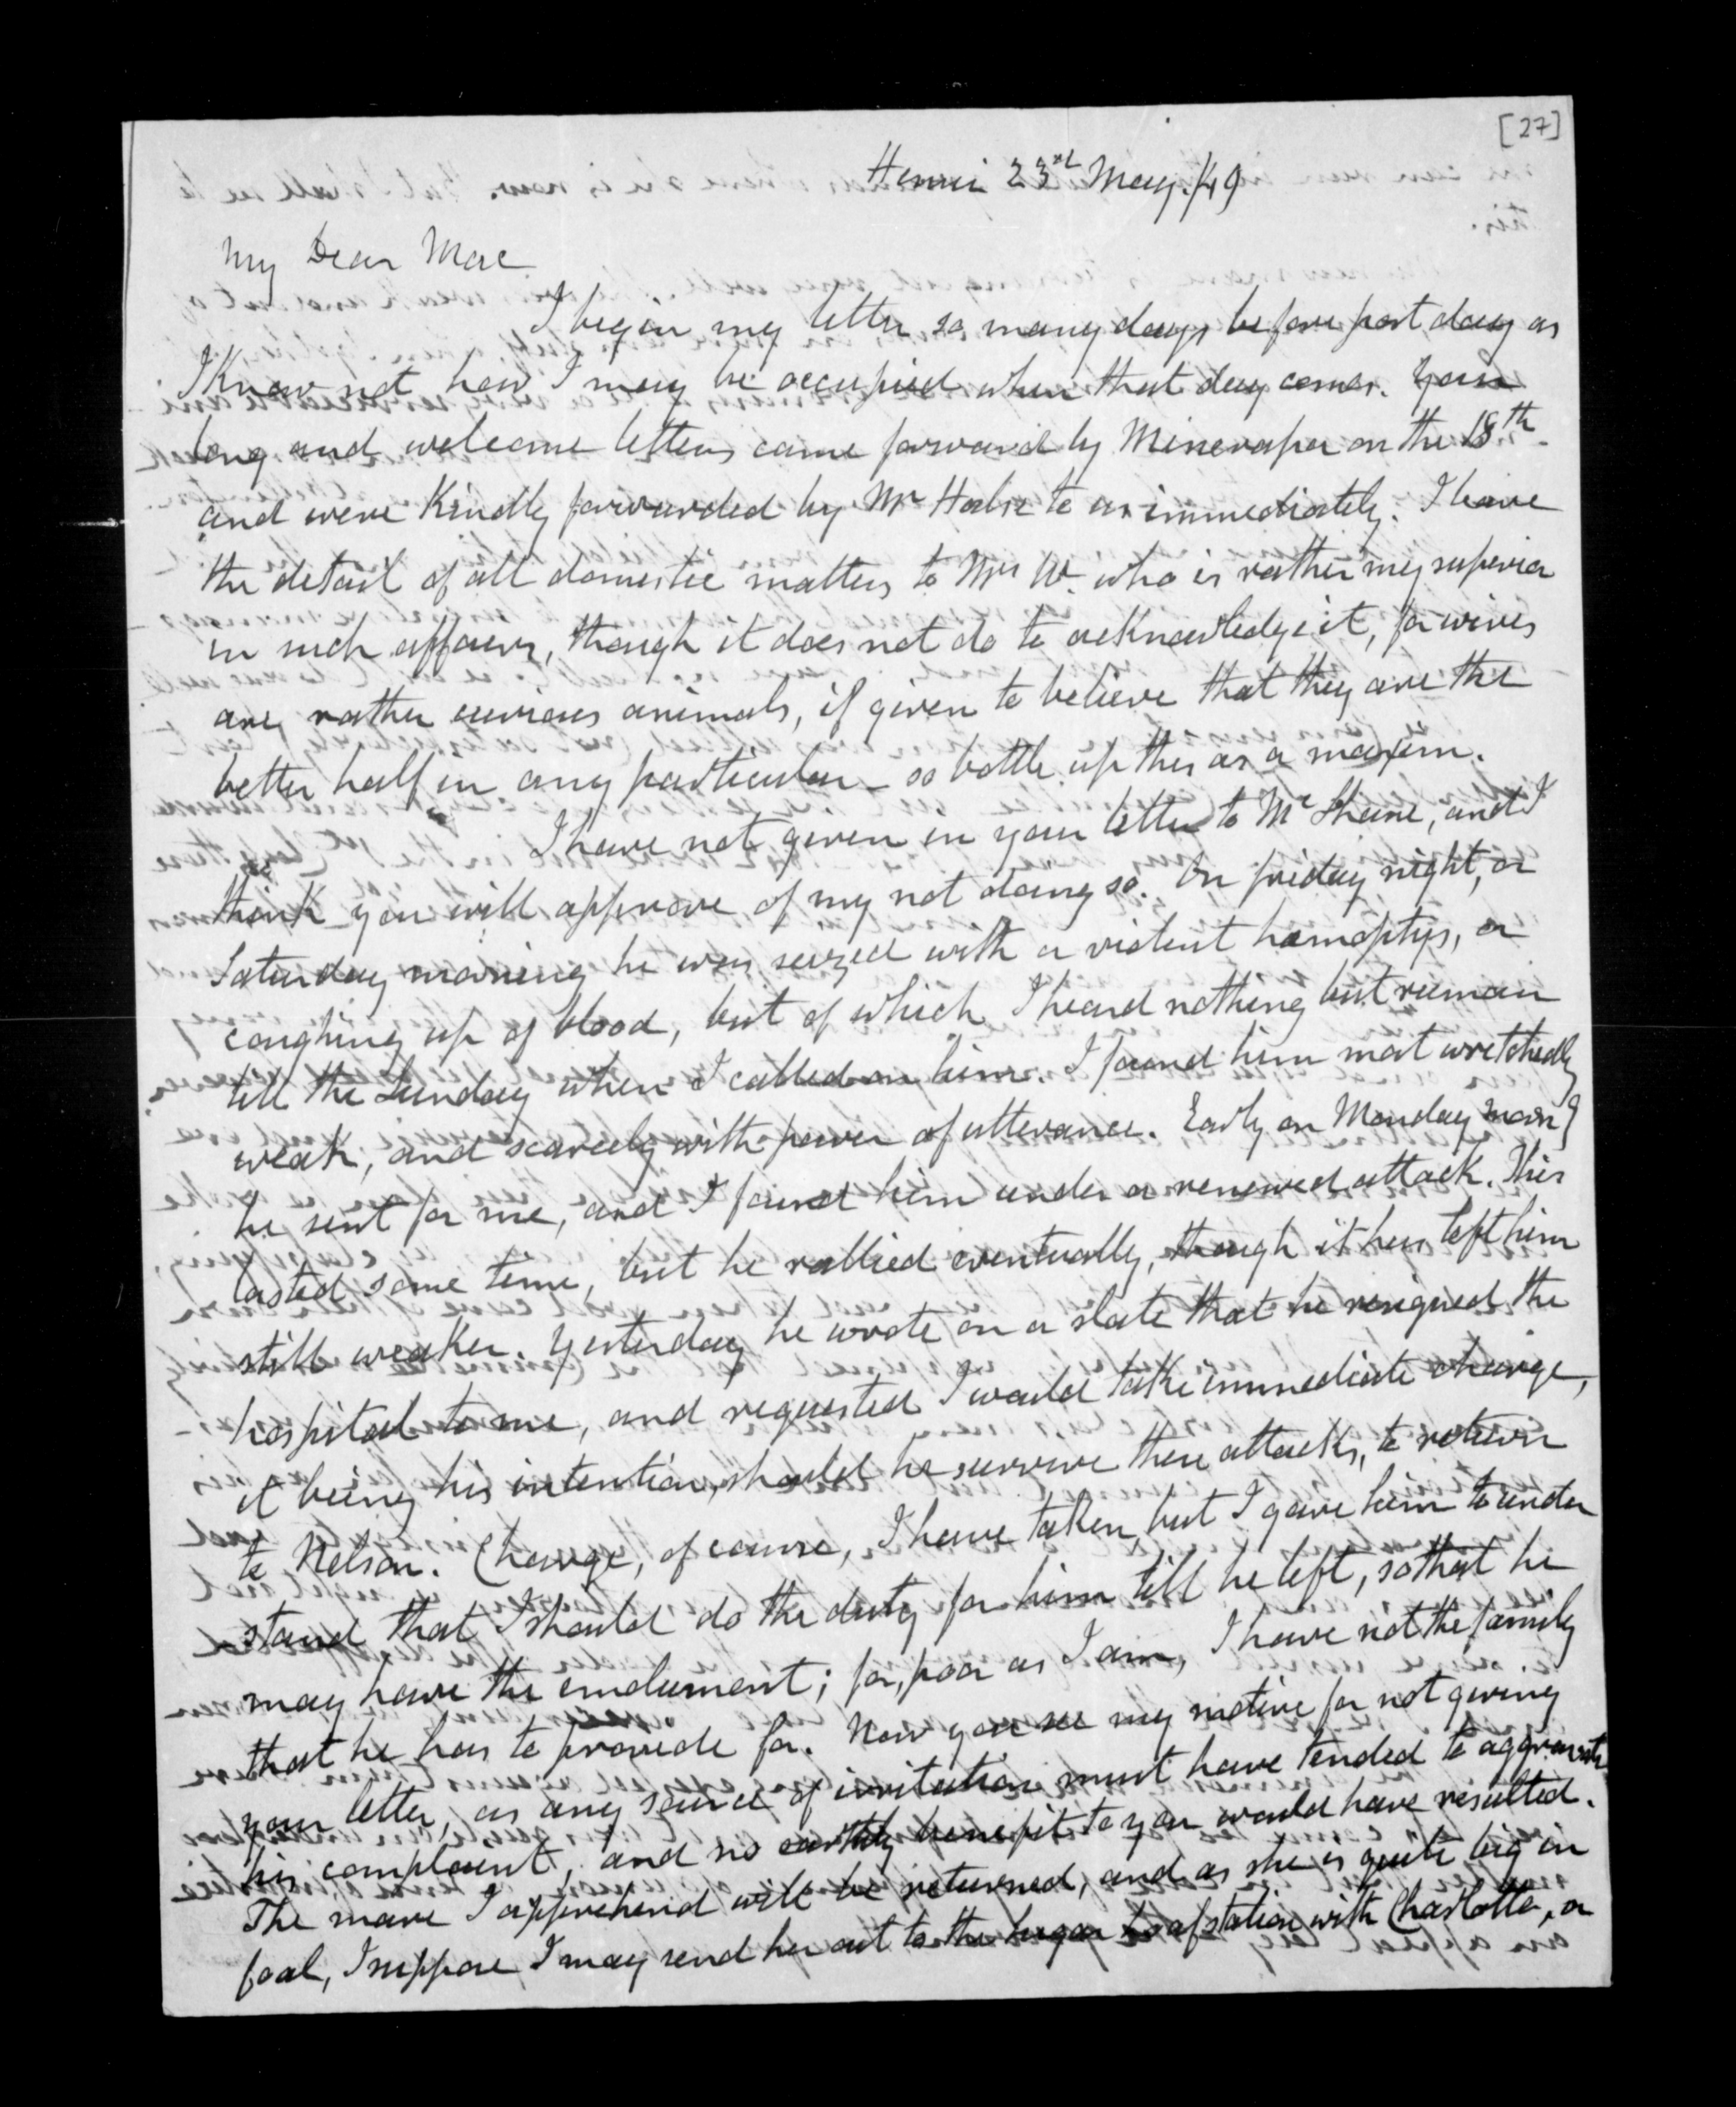 [27]
Henui 23rd May./49
My Dear Mac
I begin my letter so many days before post day as
I know not how I may be occupied when that day comes. Your
long and welcome letters came forward by Minerapa on the 18th
and were kindly forwarded by Mr Halse to us immediately. I leave
the detail of all domestic matters to Mrs W. who is rather my superior
in such affairs, though it does not do to acknowledge it, for wives
are rather curious animals, if given to believe that they are the
better half in any particular - so bottle up this as a maxim.
I have not given in your letter to Mc Shane, and I
think you will approve of my not doing so. On friday night, or
Saturday morning he was seized with a violent hamoptys, or
coughing up of blood, but of which I heard nothing but rumour
till the Sunday when I called on him. I found him most wretchedly
weak, and scarcely with power of utterance. Early on Monday morng
he sent for me, and I found him under a renewed attack. This
lasted some time, but he rallied eventually, though it has left him
still weaker. Yesterday he wrote on a slate that he resigned the
hospital to me, and requested I would take immediate charge,
it being his intention, should he survive these attacks, to return
to Nelson. Charge, of course, I have taken, but I gave him to under
stand that I should do the duty for him till he left, so that he
may have the emolument; for, poor as I am, I have not the family
that he has to provide for. Now you see my motive for not giving
your letter, as any source of irritation must have tended to aggravate
his complaint, and no earthly benefit to you would have resulted.
The mare I apprehend will be returned, and as she is quite big in
foal, I suppose I may send her out to the station with Charlotte, or